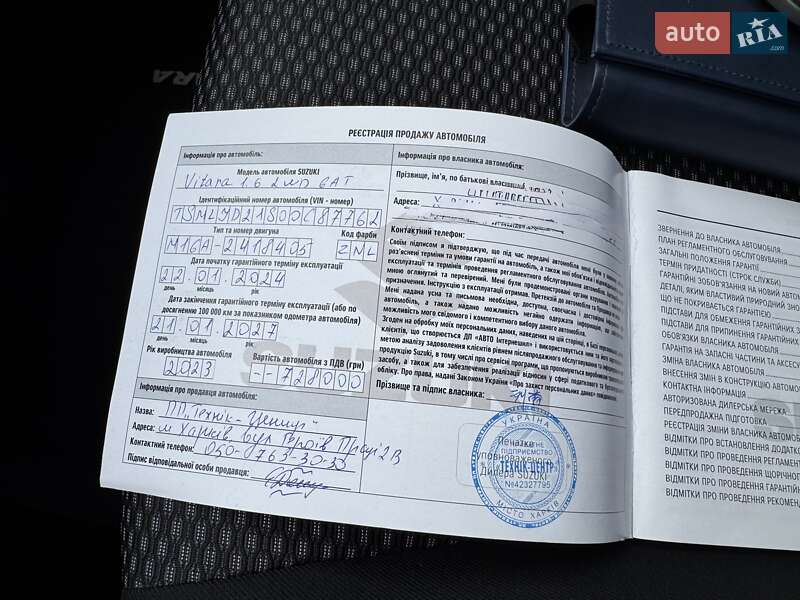 auto RIA
.com
РЕЄСТРАЦІЯ ПРОДАЖУ АВТОМОБІЛЯ
Інформація про автомобіль:
Модель автомобіля SUZUKI
Vitara 1.6 2WD 6AT
Ідентифікаційний номер автомобіля (VIN - номер)
TSMLYD21S00C87762
Тип та номер двигуна Код фарби
M16A-2418405 ZNL
Дата початку гарантійного терміну експлуатації
22.01.2024
день місяць рік
Дата закінчення гарантійного терміну експлуатації (або по
досягненню 100 000 км за показником одометра автомобіля)
21.01.2027
день місяць рік
Рік виробництва автомобіля Вартість автомобіля з ПДВ (грн)
2023 --728000
Інформація про продавця автомобіля:
Назва: ПП "Технік-Центр"
Адреса: м Харків вул Героїв Праці 2В
Контактний телефон: 050-763-30-35
Підпис відповідальної особи продавця:
Інформація про власника автомобіля:
Прізвище, ім'я, по батькові власника
Адреса:
Контактний телефон:
Своїм підписом я підтверджую, що під час передачі автомобіля мені були
роз'яснені терміни та умови гарантії на автомобіль, а також мої обов'язки
експлуатації та термінів проведення регламентного обслуговування автомобіля.
мною оглянутий та перевірений. Мені були продемонстровані органи
призначення. Інструкцію з експлуатації отримав. Претензій до автомобіля та
Мені надана усна та письмова необхідна, доступна, своєчасна і достовірна
автомобіль, а також надано можливість негайно одержати інформацію,
можливість мого свідомого і компетентного вибору даного автомобіля.
Згоден на обробку моїх персональних даних, наведених на цій сторінці, в Базі
клієнтів, що створюється ДП «АВТО Інтернешнл» і використовується ним з
метою аналізу задоволення клієнтів рівнем післяпродажного обслуговування та
продукцією Suzuki, в тому числі про сервісні програми, що пропонуються виробником
засобу, а також для забезпечення реалізації відносин у сфері податкового та
обліку. Про права, надані Законом України «Про захист персональних даних» повідомлений.
Прізвище та підпис власника:
Печатка
уповноваженого
Дилера SUZUKI
УКРАЇНА
ПІДПРИЄМСТВО
"ТЕХНІК-ЦЕНТР"
№42327795
МІСТО ХАРКІВ
SUZUKI
ЗВЕРНЕННЯ ДО ВЛАСНИКА АВТОМОБІЛЯ
ПЛАН РЕГЛАМЕНТНОГО ОБСЛУГОВУВАННЯ
ЗАГАЛЬНІ ПОЛОЖЕННЯ ГАРАНТІЇ
ТЕРМІН ПРИДАТНОСТІ (СТРОК СЛУЖБИ)
ГАРАНТІЙНІ ЗОБОВ'ЯЗАННЯ НА НОВИЙ
ДЕТАЛІ, ЯКИМ ВЛАСТИВИЙ ПРИРОДНИЙ
ЩО НЕ ПОКРИВАЄТЬСЯ ГАРАНТІЄЮ
ПІДСТАВИ ДЛЯ ОБМЕЖЕННЯ ГАРАНТІЙНИХ
ПІДСТАВИ ДЛЯ ПРИПИНЕННЯ ГАРАНТІЙНИХ
ОБОВ'ЯЗКИ ВЛАСНИКА АВТОМОБІЛЯ
ГАРАНТІЯ НА ЗАПАСНІ ЧАСТИНИ ТА
ЗМІНА ВЛАСНИКА АВТОМОБІЛЯ
ВНЕСЕННЯ ЗМІН В КОНСТРУКЦІЮ
КОНТАКТНА ІНФОРМАЦІЯ
АВТОРИЗОВАНА ДИЛЕРСЬКА МЕРЕЖА
ПЕРЕДПРОДАЖНА ПІДГОТОВКА
РЕЄСТРАЦІЯ ЗМІНИ ВЛАСНИКА
ВІДМІТКИ ПРО ВСТАНОВЛЕННЯ
ВІДМІТКИ ПРО ПРОВЕДЕННЯ
ВІДМІТКИ ПРО ПРОВЕДЕННЯ ЩОРІЧНОГО
ВІДМІТКИ ПРО ПРОВЕДЕННЯ
ВІДМІТКИ ПРО ПРОВЕДЕННЯ